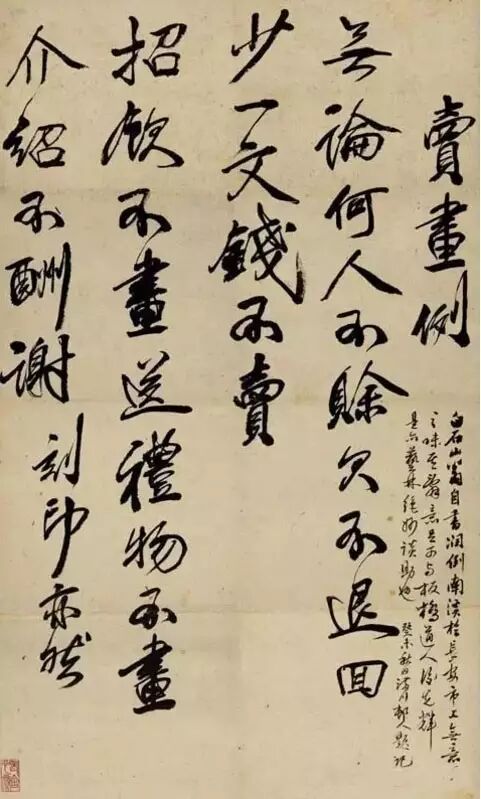 賣畫例
無論何人不賒欠不退回
少一文錢不賣
招飲不畫送禮物不畫
介紹不酬謝刻印亦然
白石山翁自書潤例於長安市上無意
之味與板橋道人後先輝
是亦藝林絕妙談助也 癸未秋日題記